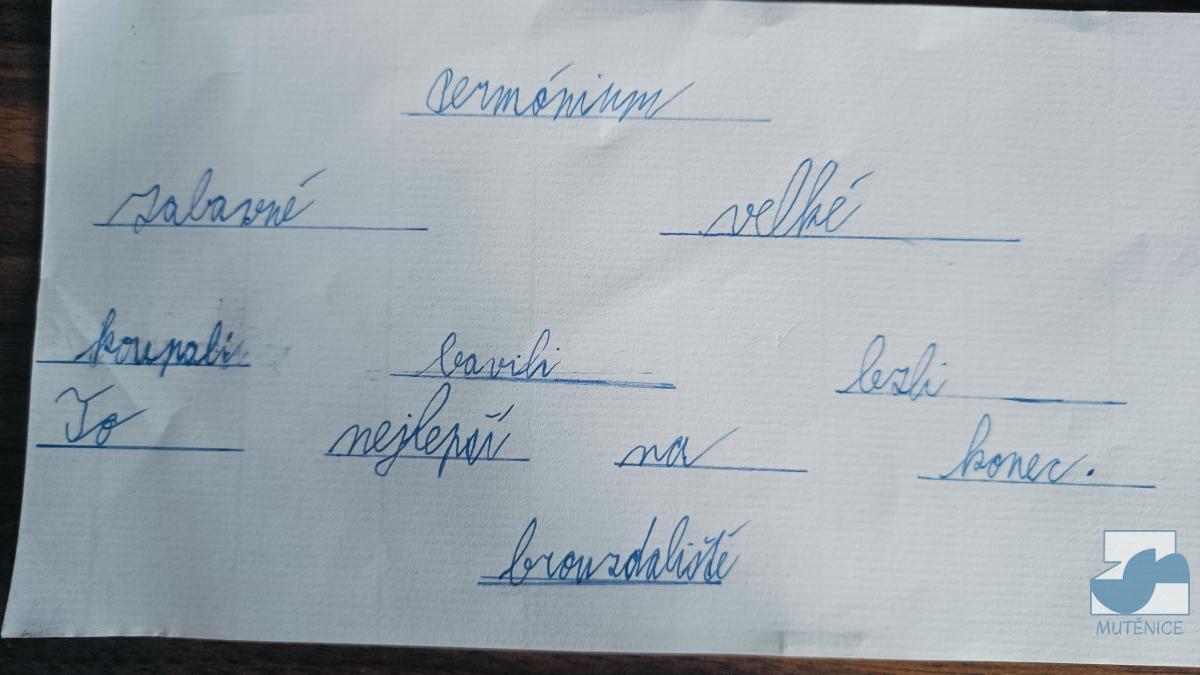 Permónium
zabavné velké
koupali bavili lezli
To nejlepší na konec.
brouzdaliště
MUTĚNICE